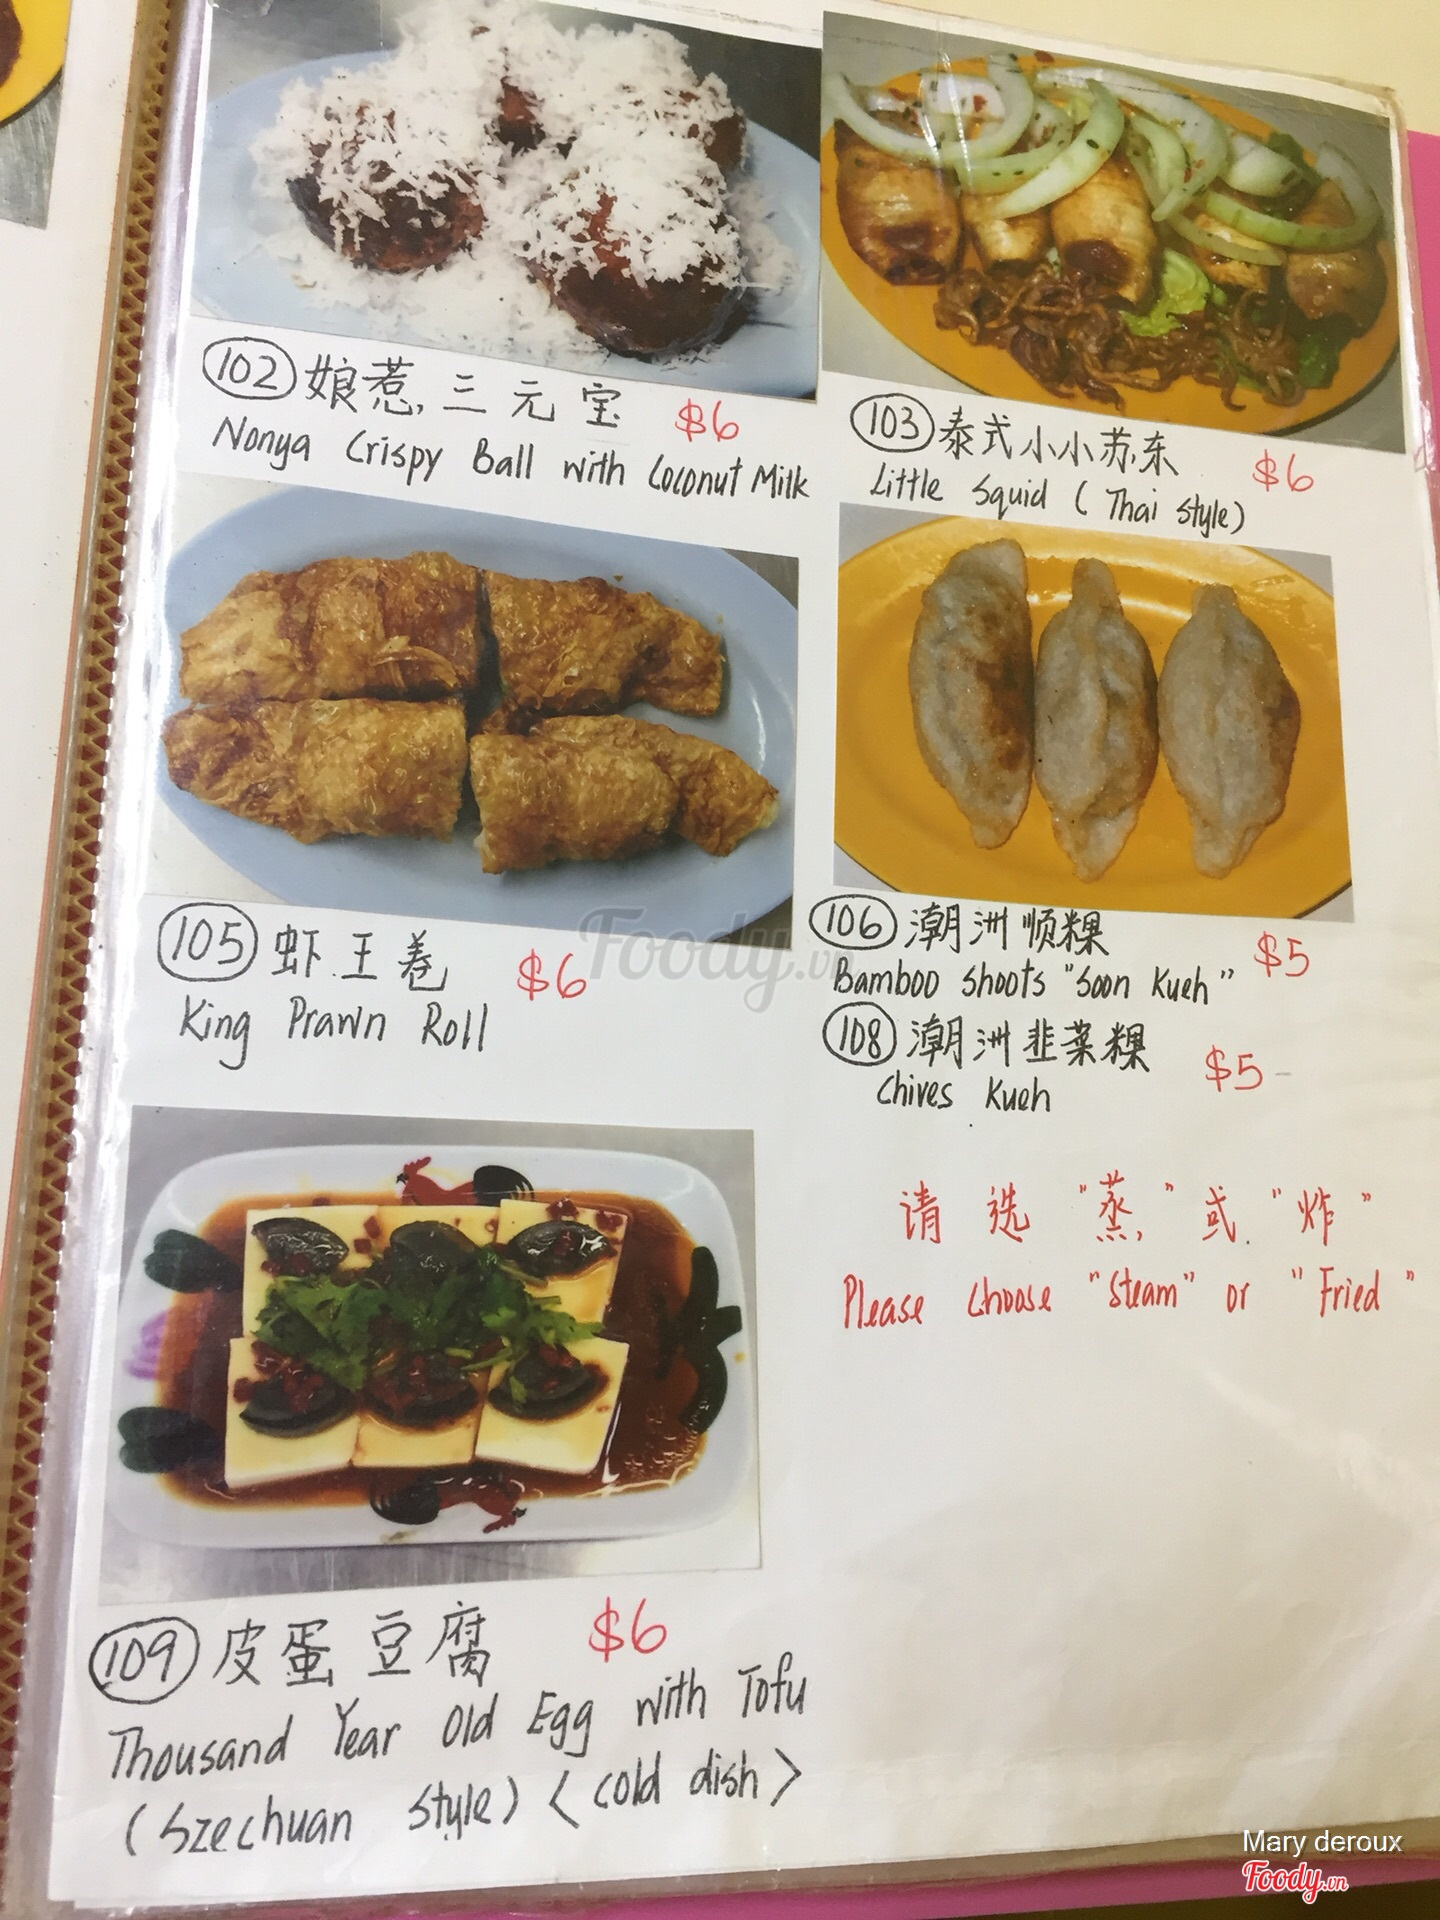 102 娘惹三元宝 $6
Nonya Crispy Ball with Coconut Milk
103 泰式小小苏东 $6
Little Squid (Thai Style)
105 虾王卷 $6
King Prawn Roll
106 潮洲顺粿 $5
Bamboo Shoots "Soon Kueh"
108 潮洲韭菜粿 $5
Chives Kueh
请选"蒸"或"炸"
Please choose "Steam" or "Fried"
109 皮蛋豆腐 $6
Thousand Year Old Egg with Tofu
(Szechuan Style) < Cold dish >
Foody.vn
Mary deroux
Foody.vn